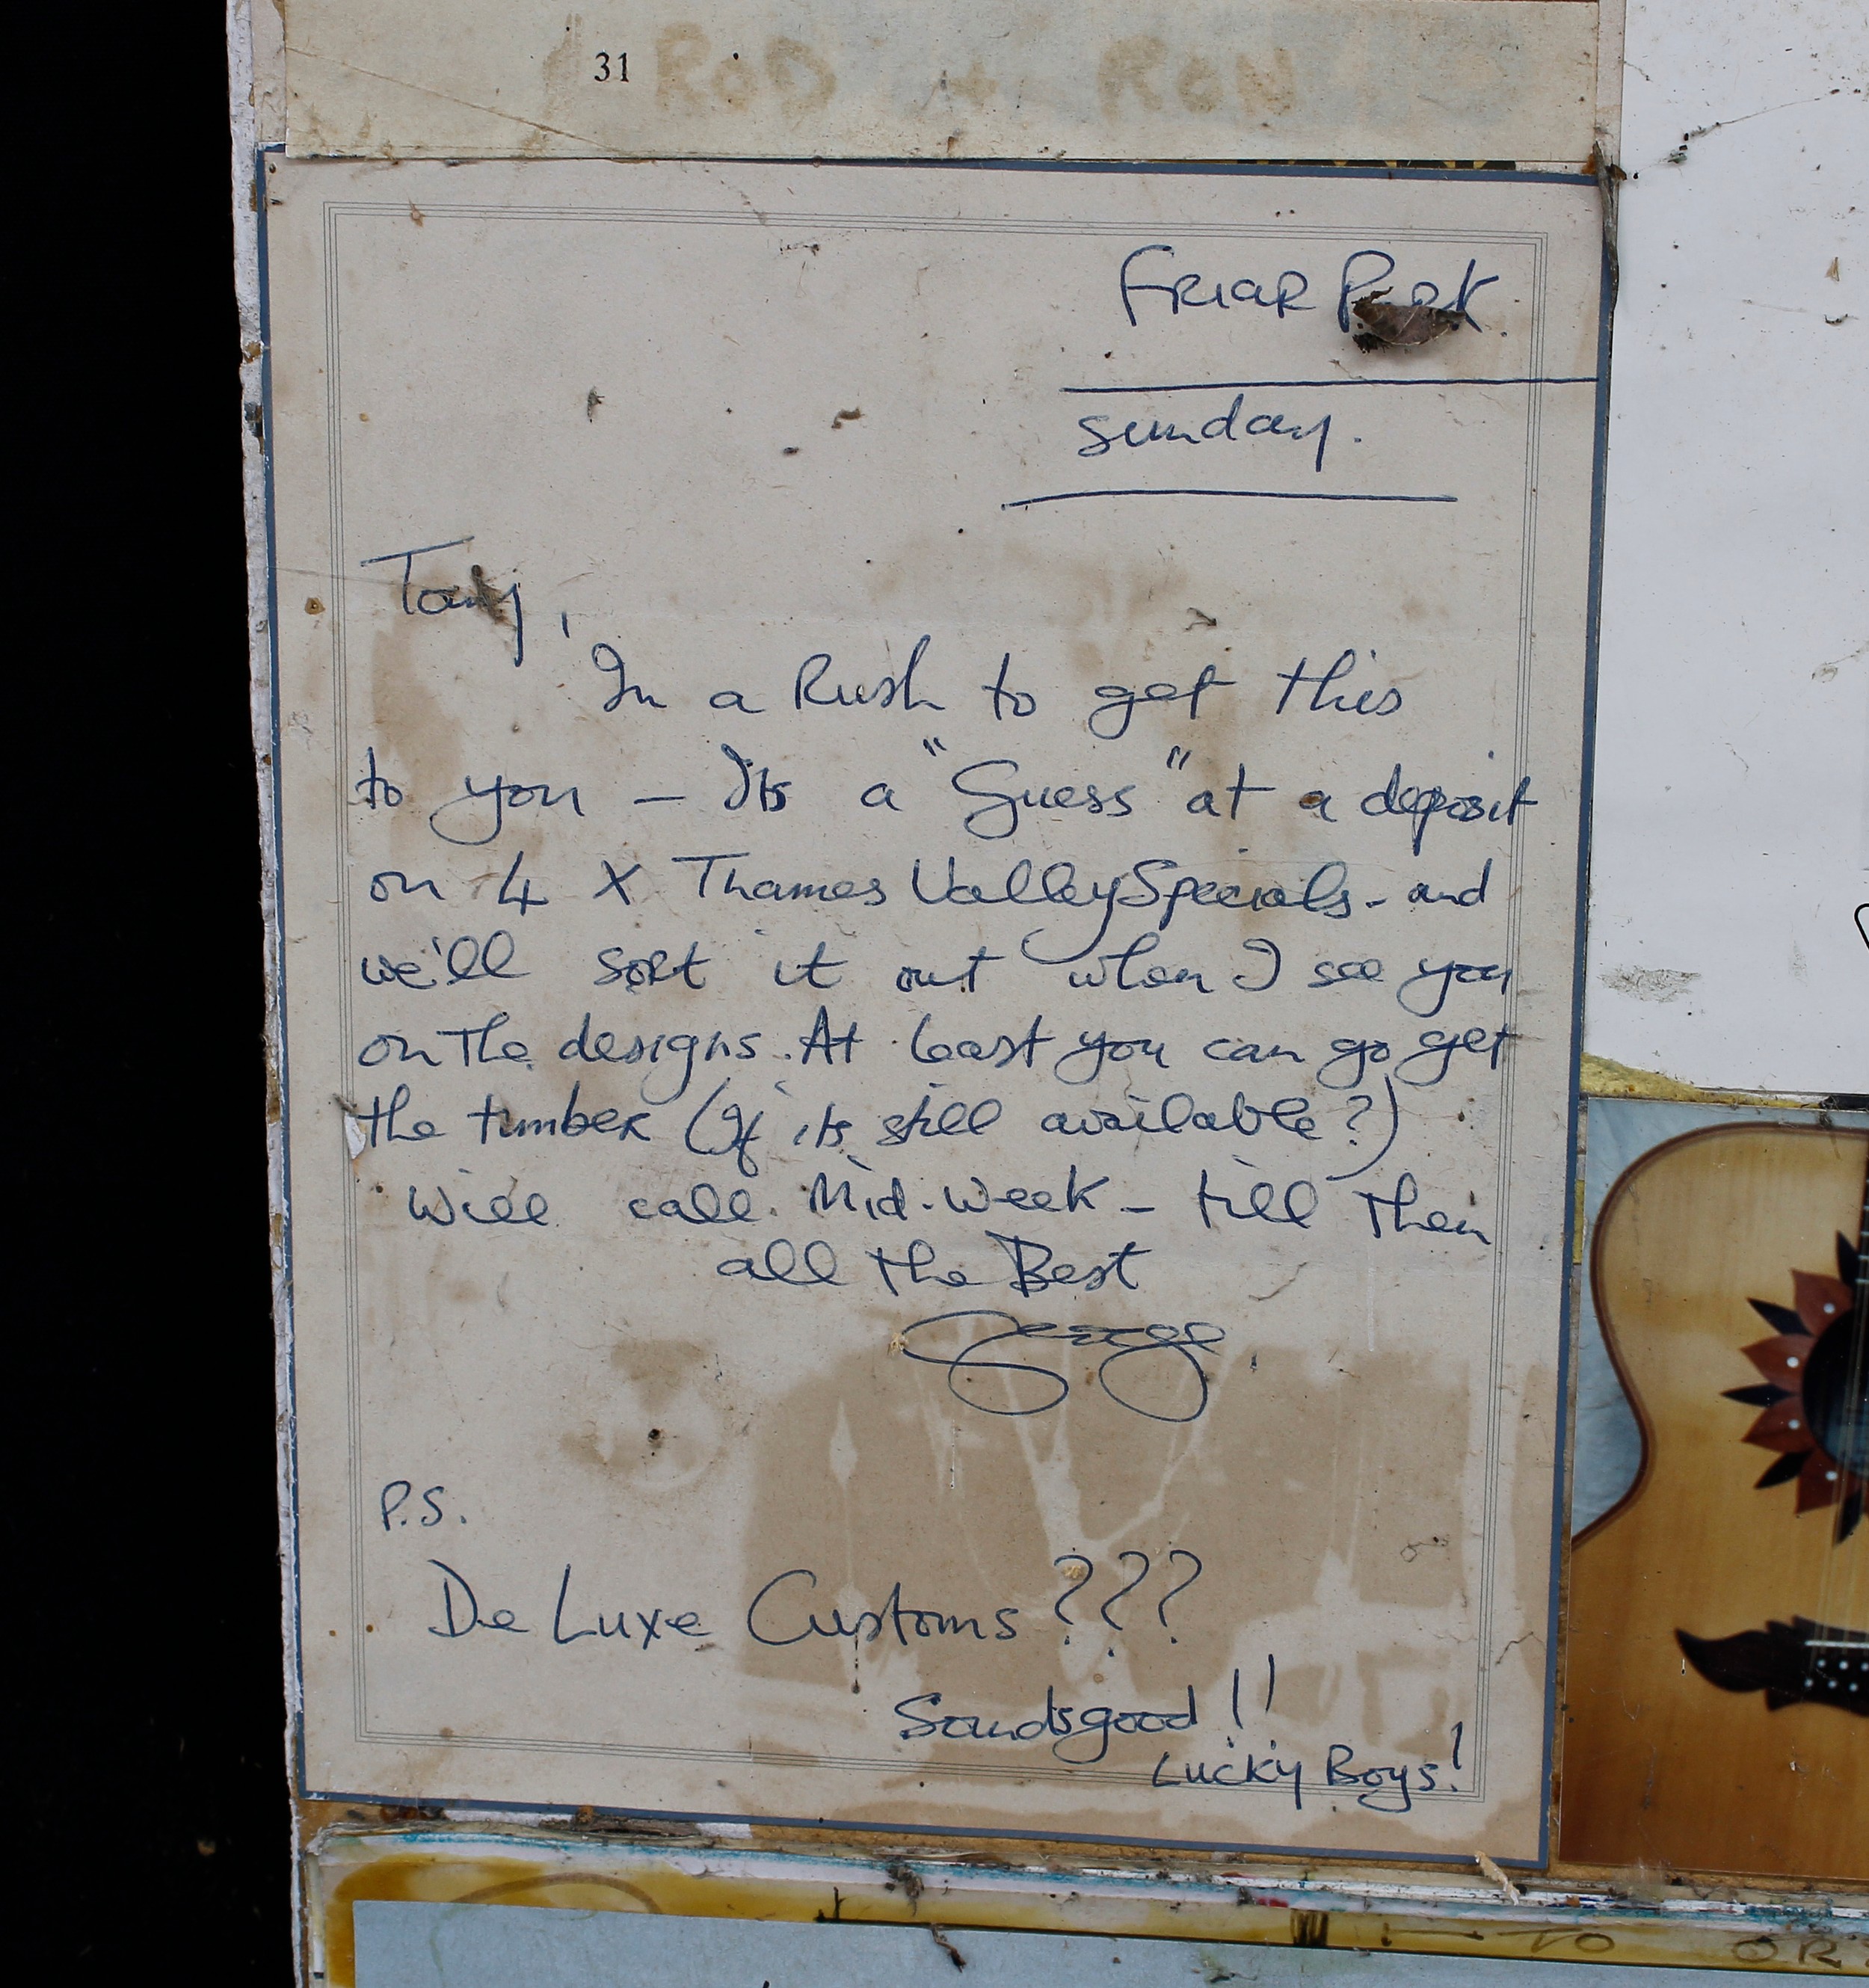 31
ROD + RON
FRIAR PARK.
sunday.
Tony,
In a Rush to get this
to you – Its a "Guess" at a deposit
on 4 X Thames Valley Specials - and
we'll sort it out when I see you
on The designs. At least you can go get
the timber (If its still available?)
Will call Mid-week – till Then
all the Best
George
P.S.
De Luxe Customs???
Soundsgood!!
LUCKY BOYS!
TO